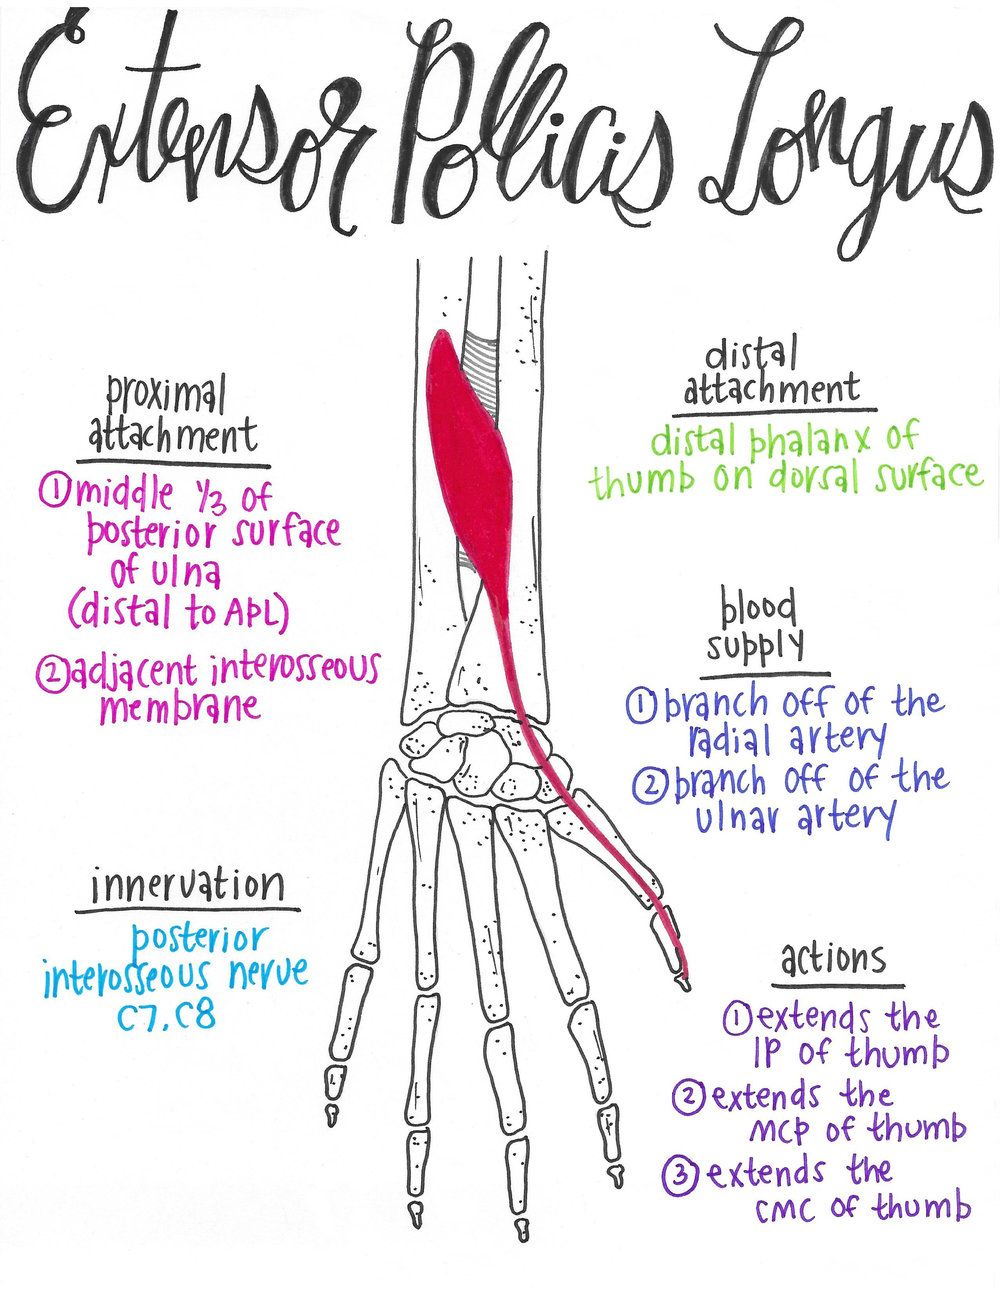 Extensor Pollicis Longus
proximal
attachment
① middle 1/3 of
posterior surface
of ulna
(distal to APL)
② adjacent interosseous
membrane
innervation
posterior
interosseous nerve
C7, C8
distal
attachment
distal phalanx of
thumb on dorsal surface
blood
supply
① branch off of the
radial artery
② branch off of the
ulnar artery
actions
① extends the
IP of thumb
② extends the
MCP of thumb
③ extends the
CMC of thumb